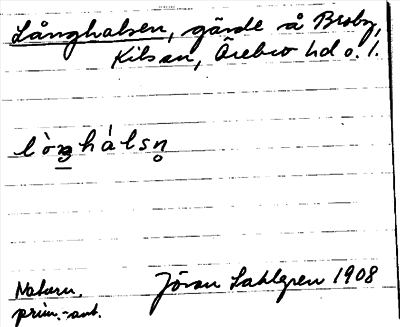 Långhalsen, gärde å Broby,
Kils sn, Örebro hd o. l.
lòŋhálsn̥
Naturn.
prim.-ant.
Jöran Sahlgren 1908